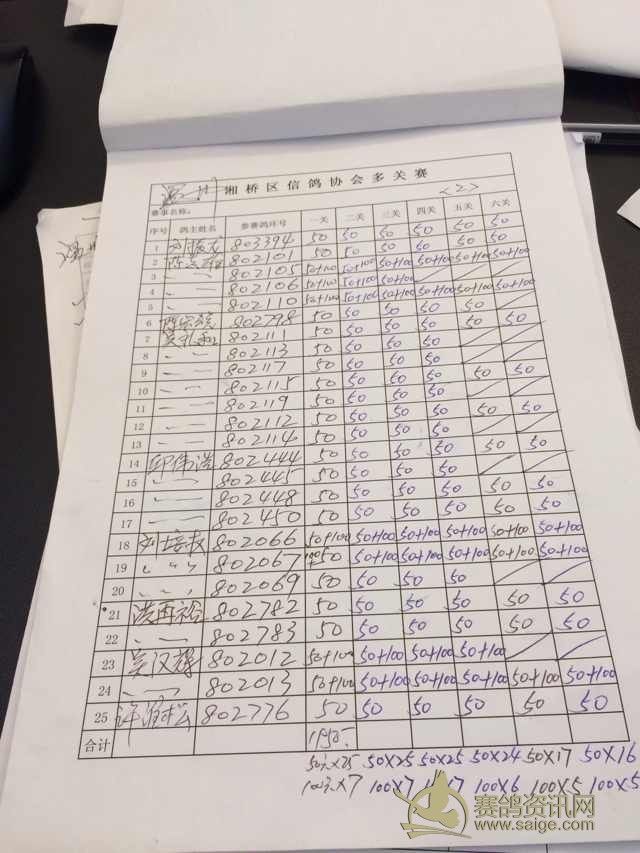 湘桥区信鸽协会多关赛
赛事名称: <2>
序号 鸽主姓名 参赛鸽环号 一关 二关 三关 四关 五关 六关
1 803394 50 50 50 50 50 50
2 802101 50 50 50 50 50 50
3 802105 50+100 50+100 50+100 50+100 50+100 50+100
4 802106 50+100 50+100 50+100
5 802110 50+100 50+100 50+100 50+100 50+100 50+100
6 802798 50 50 50 50
7 802111 50 50 50 50 50 50
8 802113 50 50 50 50
9 802117 50 50 50 50
10 802115 50 50 50 50 50 50
11 802119 50 50 50 50
12 802112 50 50 50 50 50 50
13 802114 50 50 50 50
14 802444 50 50 50 50 50 50
15 802445 50 50 50 50
16 802448 50 50 50 50 50 50
17 802450 50 50 50 50 50 50
18 802066 50+100 50+100 50+100 50+100 50+100 50+100
19 802067 100+50 50+100 50+100 50+100 50+100 50+100
20 802069 50 50 50 50
21 802782 50 50 50 50 50 50
22 802783 50 50 50 50 50 50
23 吴汉辉 802012 50+100 50+100 50+100 50+100
24 802013 50+100 50+100 50+100 50+100 50+100 50+100
25 802776 50 50 50 50 50 50
合计 1950
50元×25 50×25 50×25 50×24 50×17 50×16
100元×7 100×7 100×6 100×5 100×5
赛鸽资讯网
www.saige.com